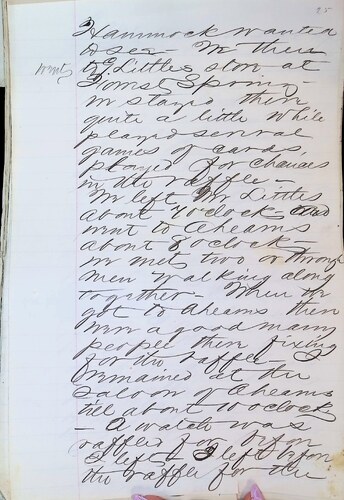 25
Hammock wanted
to see - We then
went
to G. Littles store at
Forest Springs -
We stayed there
quite a little while
played several
games of cards,
played for chances
in the raffle -
We left Mr Littles
about 7 o'clock and
went to Aheams
about 8 o'clock -
We mets two or through
men walking along
together - When we
got to Aheams there
were a good many
people there fixing
for the raffle - I
remained at the
saloon of Aheams
till about 10 o'clock
- A watch was
raffled for before
I left - I left before
the raffle for the